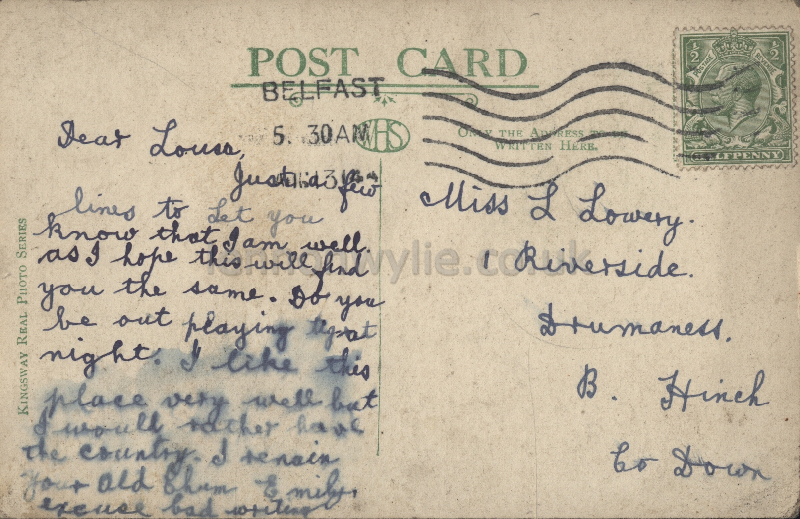 POST CARD
BELFAST
5. 30 AM
WHS
ONLY THE ADDRESS TO BE
WRITTEN HERE.
½ ½
HALFPENNY
KINGSWAY REAL PHOTO SERIES
Dear Louse,
Just a few
lines to let you
know that I am well.
as I hope this will find
you the same. Do you
be out playing at
night. I like this
place very well but
I would rather have
the country. I remain
your Old Chum Emily,
excuse bad writing
Miss L Lowery.
1 Riverside.
Drumaness.
B. Hinch
Co Down
wylie.co.uk